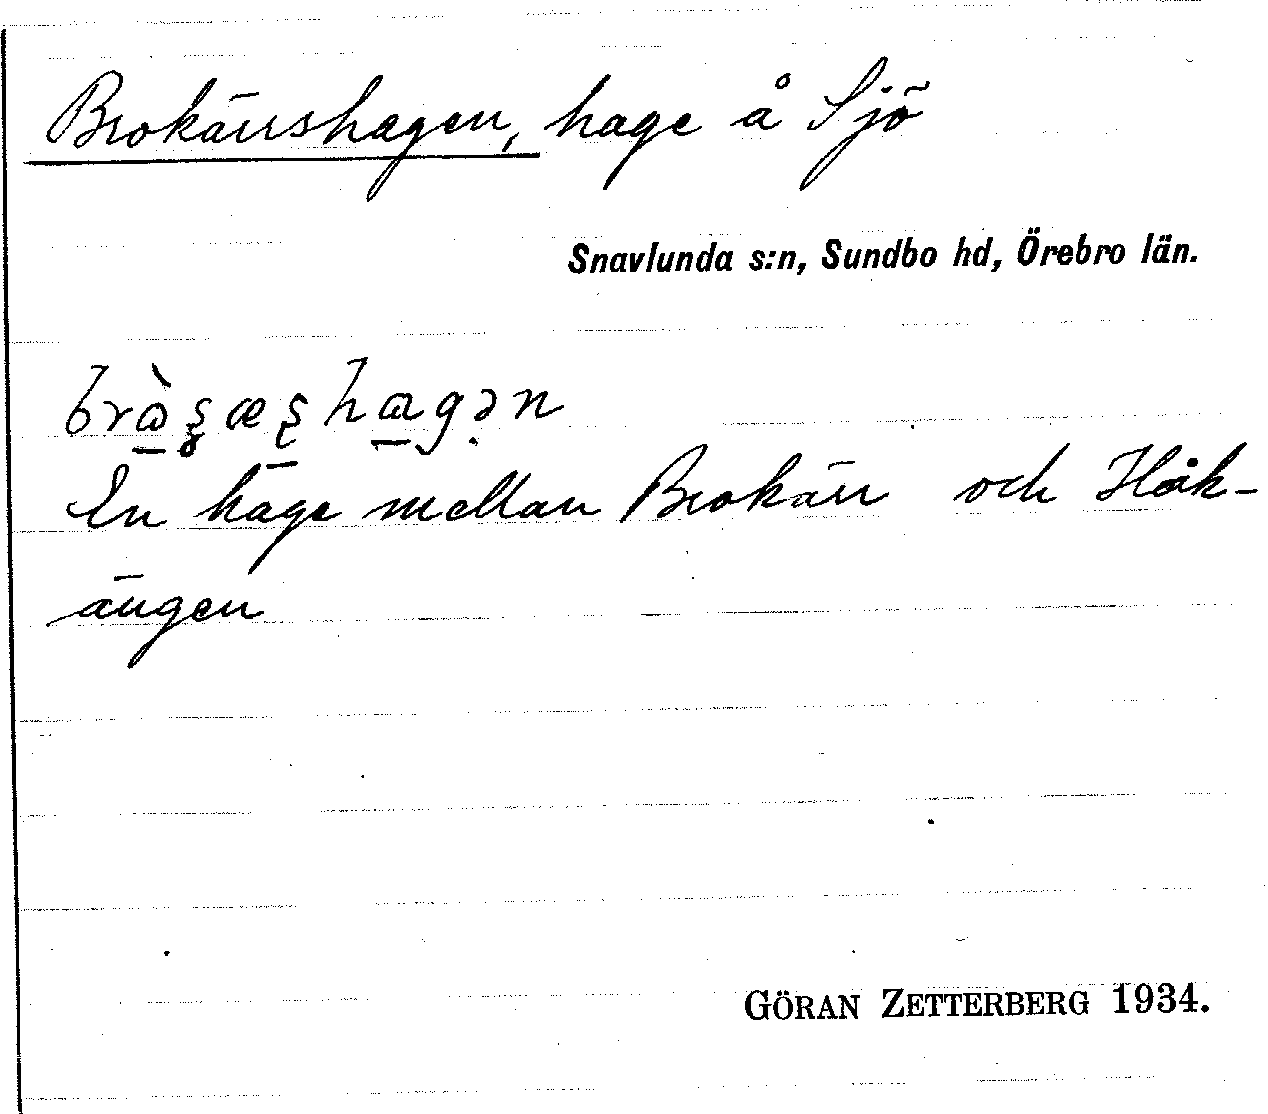 Brokärrshagen, hage å Sjö
Snavlunda s:n, Sundbo hd, Örebro län.
En hage mellan Brokärr och Håk-
ängen
GÖRAN ZETTERBERG 1934.